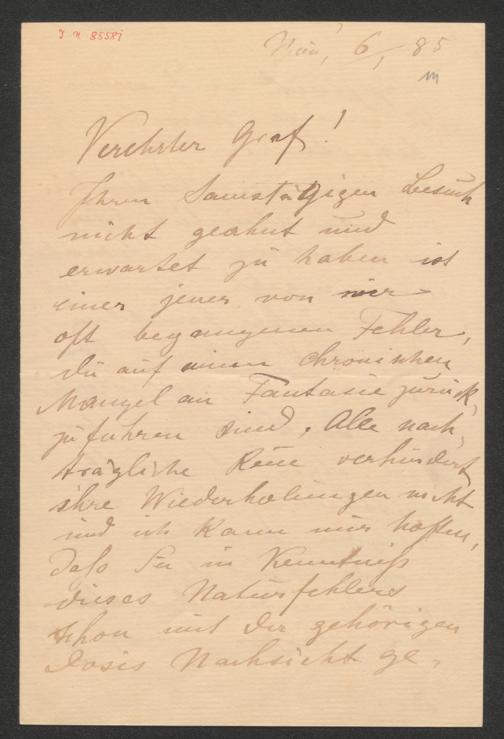 J. N. 85581
6/ 85
Verehrter Graf!
Ihren Samstägigen Besuch
nicht geahnt und
erwartet zu haben ist
einer jener von mir
oft begangenen Fehler,
die auf einen chronischen
Mangel an Fantasie zurück,
zuführen sind. Alle nach,
trägliche Reue verhindert
ihre Wiederholungen nicht
und ich kann nur hoffen,
daß Sie in Kenntniß
dieses Naturfehlers
schon mit der gehörigen
Dosis Nachsicht ge,